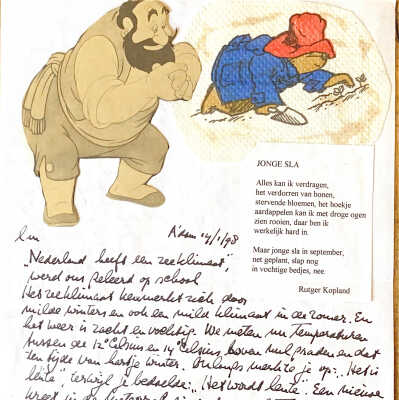 JONGE SLA
Alles kan ik verdragen,
het verdorren van bonen,
stervende bloemen, het hoekje
aardappelen kan ik met droge ogen
zien rooien, daar ben ik
werkelijk hard in.
Maar jonge sla in september,
net geplant, slap nog
in vochtige bedjes, nee.
Rutger Kopland
A'dam 14/1/98
"Nederland heeft een zeeklimaat",
werd ons geleerd op school
Het zeeklimaat kenmerkt zich door
milde winters en ook een mild klimaat in de zomer. En
het weer is zacht en vochtig. We meten nu temperaturen
tussen de 12° Celsius en 14° Celsius, boven nul graden en dat
ten tijde van hartje winter. Onlangs merkte je op: "Het is
lente", terwijl je bedoelde: "Het wordt lente". Een nieuwe